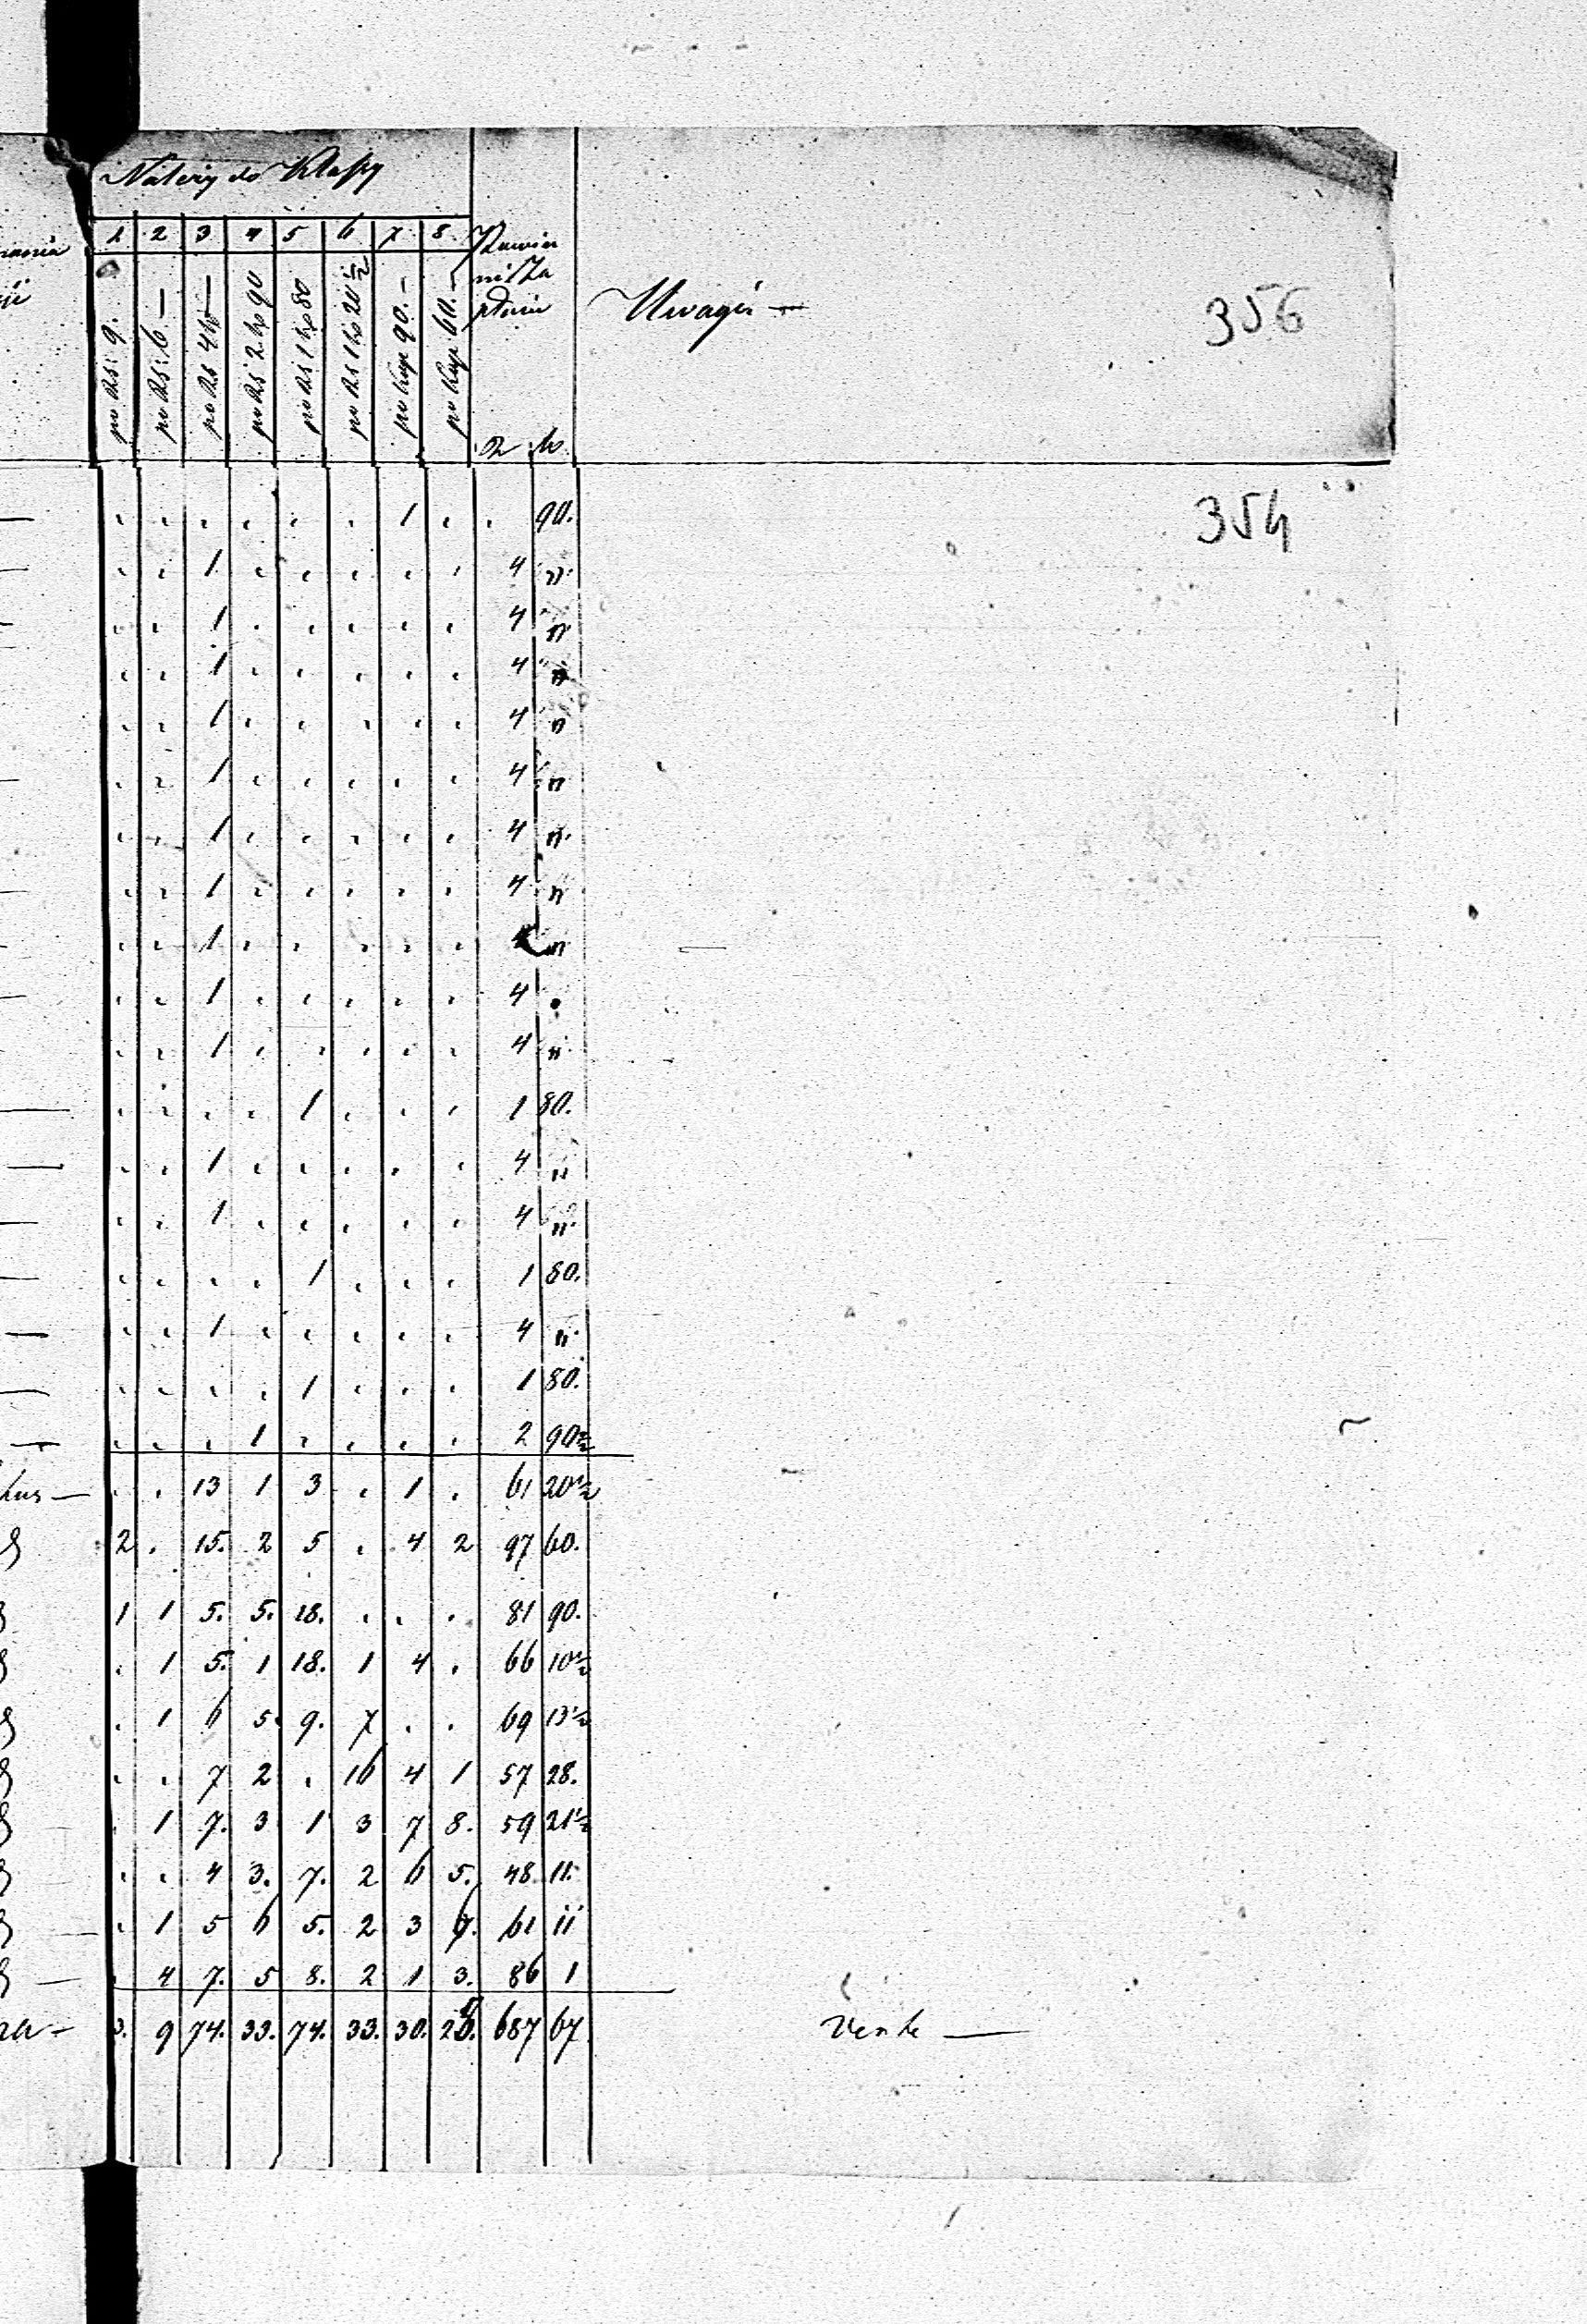 Należy do Klassy
1 2 3 4 5 6 7 8
po RS: 9. po RS: 6 — po RS 4 — po RS 2 kp 90 po RS 1 kp 80 po RS 1 kp 20 1/2 po Kop 90. — po Kop 60. —
Powin
ni Za
płacić
R k.
Uwagi —
356
354
. . . . . . 1 . . 90.
. . 1 . . . . . 4 "
. . 1 . . . . . 4 "
. . 1 . . . . . 4 "
. . 1 . . . . . 4 "
. . 1 . . . . . 4 "
. . 1 . . . . . 4 "
. . 1 . . . . . 4 "
. . 1 . . . . . 4 "
. . 1 . . . . . 4 .
. . 1 . . . . . 4 "
. . . . 1 . . . 1 80.
. . 1 . . . . . 4 "
. . 1 . . . . . 4 "
. . . . 1 . . . 1 80.
. . 1 . . . . . 4 "
. . . . 1 . . . 1 80.
. . . 1 . . . . 2 90 1/2
. . 13 1 3 . 1 . 61 20 1/2
2 . 15. 2 5 . 4 2 97 60.
1 1 5. 5. 18. . . . 81 90.
. 1 5. 1 18. 1 4 . 66 10 1/2
. 1 6 5. 9. 7 . . 69 13 1/2
. . 7 2 . 16 4 1 57 28.
. 1 7. 3 1 3 7 8. 59 21 1/2
. . 4 3. 7. 2 6 5. 48 11.
. 1 5 6 5. 2 3 61 11
. 4 7. 5 8. 2 1 3. 86 1
3. 9 74. 33. 74. 33. 30. 687 67